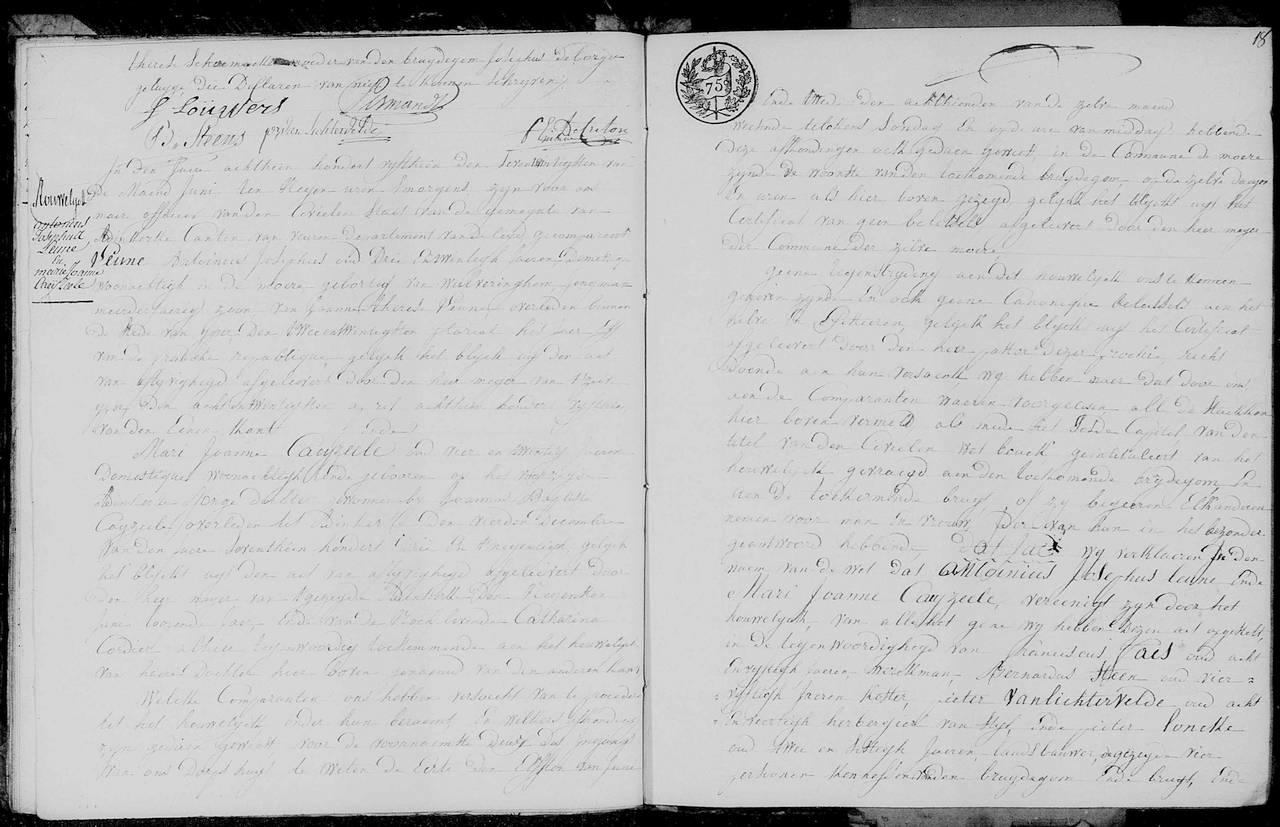 theres Schoemaeker moeder van den bruydegom Josephus Deborgo
getuyge Die Diklaren van niet te konnen schryven
f Louwers Armand
B. Steens pr van Lichtervelde f Ed De Creton
In den Jaere achthien hondert vyfthien den sevenentwyntigsten van
de Maend Juni ten Negen uren s'morgens, zyn voor ons
maire officier van den Civielen Staet van de gemeynte van
Canton van veuren Departement van de Leye gecompareert
Leune Antoinius Josephus oud Drie En twentigh Jaeren Domestique
woonachtigh in de Moere geboortig van Wulveringhem, jongman
meerderjaerig zoon van Joanne Theres Venne overleden binnen
de stede van yper, Den tweentwintigsten floreal het jaer
van de fransche republique gelyck het blyckt uyt den act
van aflyvigheyd afgelevert door den heer meyer van
yper Den achtentwintigsten april achthien hondert vyfthien
van den Eenen kant Ende
Mari Joanne Cayzeele oud vier en twintig Jaeren
Domestique woonachtigh geboren op het
gewonnen by Joannes Baptiste
Cayzeele overleden tot den vierden December
van den jaere seventhien hondert drie En tnegentigh, gelyck
het blyckt uyt den act van aflyvigheyd afgelevert door
den heer mayer van den Negensten
June loopende Jaer, Ende van de Noch levende Catharina
Cordier alhier tegenwoordig toestemmende aen het houwelyck
van haere Dochter hier boven genaemt van den anderen kant
Welcke Comparanten ons hebben versocht van te procederen
tot het houwelyck onder hun beraemt En welkers afkondigingen
zyn gedaen geweest voor de voornaemste Deure van ingang
van ons Dorpshuys te weten de Eerste den Elfsten van June
Houwelyck
antonius
Josephus
Leune
En
marie Joanne
Cayzeele
18
75
Ende tweede den achthienden van de zelve maend
weesende telckens Sondag En op de ure van middag, hebbende
deze afkondingen ook gedaen geweest in de Commune de moere
zynde de woonste van den toekomende bruydegom, op de zelve dagen
En uren als hier boven gezegd gelyck het blyckt uyt het
Certificat van geen beletsel afgelevert door den heer mayer
der Commune der zelve moere
geene tegenstryding aen dit houwelyck ons te kennen
gegeven zynde En ook geene Canonique beletsels aen het
zelve te Existeeren, gelyck het blyckt uyt het Certificat
afgelevert door den heer pastor dezer prochie, recht
doende aen hun versoeck wy hebben naer dat door ons
aen de Comparanten waeren voorgelesen all de stucken
hier boven vermeld als mede het sesde Capitel van den
titel van den Civielen Wet bouck geintituleert van het
houwelyck gevraegd aen den toekomende brydegom En
aen de toekomende bruyd of zy begeiren Elkanderen
nemen voor man En vrouw, Jder van hun in het bezonder
geantwoord hebbende dat jae wy verklaeren in den
naem van de wet dat Antoinius Josephus Leune Ende
Mari Joanne Cayzeele, vereenigt zyn door het
houwelyck, van alle het gene wy hebben dezen act opgestelt
in de tegenwoordigheyd van franciscus Cais oud acht
En vyftigh jaeren Werckman, Bernardus Steen oud vier
vyftigh Jaeren koster, pieter Vanlichtervelde oud acht
En veertigh herbergier van styl, Ende pieter Loncke
oud twee en sestigh Jaeren, landsbouwer, de gezegde vier
persoonen kennissen van den bruydegom Ende bruyd, Ende